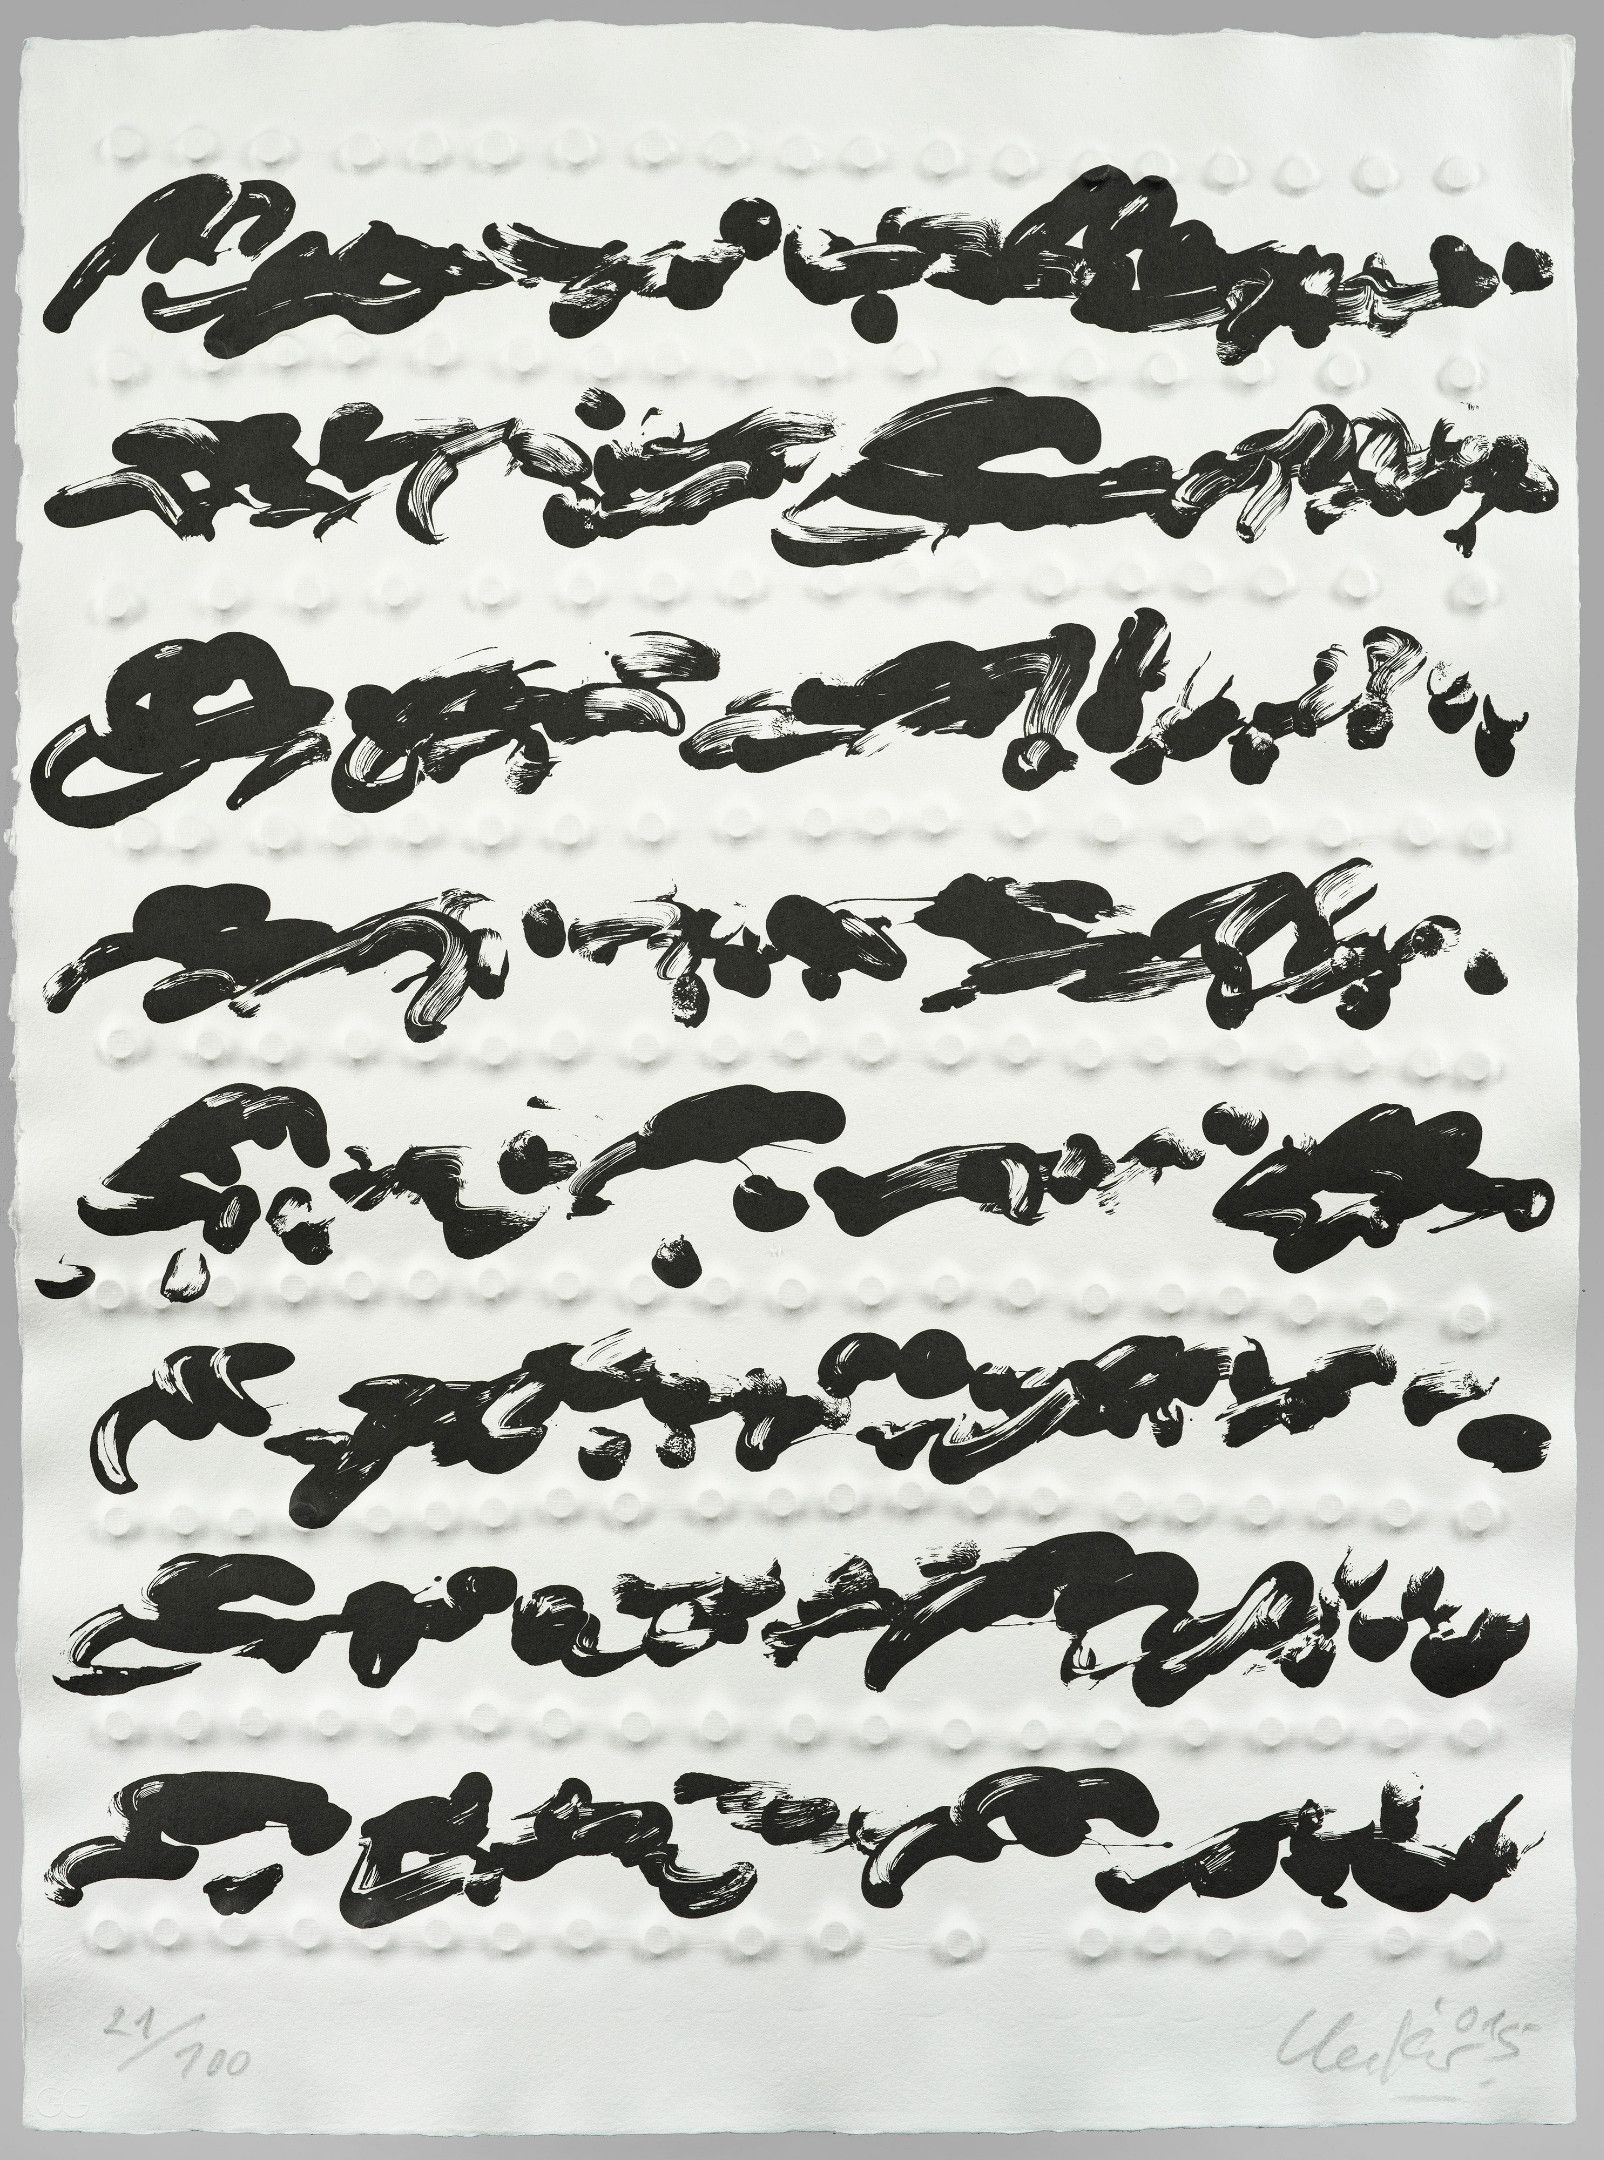 21/100
Uecker '015
GG